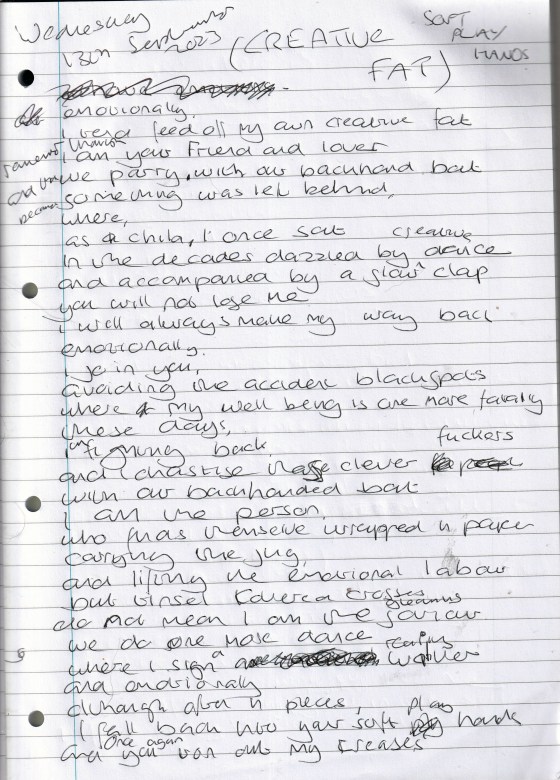 Wednesday
13th September 2023
(CREATIVE FAT)
SOFT
PLAY
HANDS
emotionally.
I feed off my own creative fat
I am your Friend and lover
we party, with our backhand bat
something was left behind,
where,
as a child, I once sat
in the decades dazzled by creative dance
and accompanied by a slow clap
you will not lose me
I will always make my way back
emotionally.
I go in you,
avoiding the accident blackspots
where my well being is one more fatality
these days,
I'm fighting back,
and I chastise these clever fuckers
with our backhanded bat
I am the person,
who finds themselve wrapped in paper
carrying the jug,
and lifting the emotional labour
but tinsel covered crosses
do not mean I am the gleaming saviour
we do one more dance
where I sign a waiver
and emotionally
although often in pieces,
I fall back into your soft play hands
Once again
and you iron out my creases